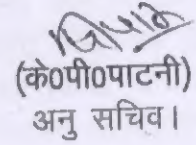 (के0पी0पाटनी)
अनु सचिव।